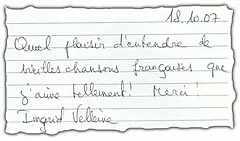 18.10.07
Quel plaisir d'entendre de
vieilles chansons françaises que
j'aime tellement! Merci!
Ingrid